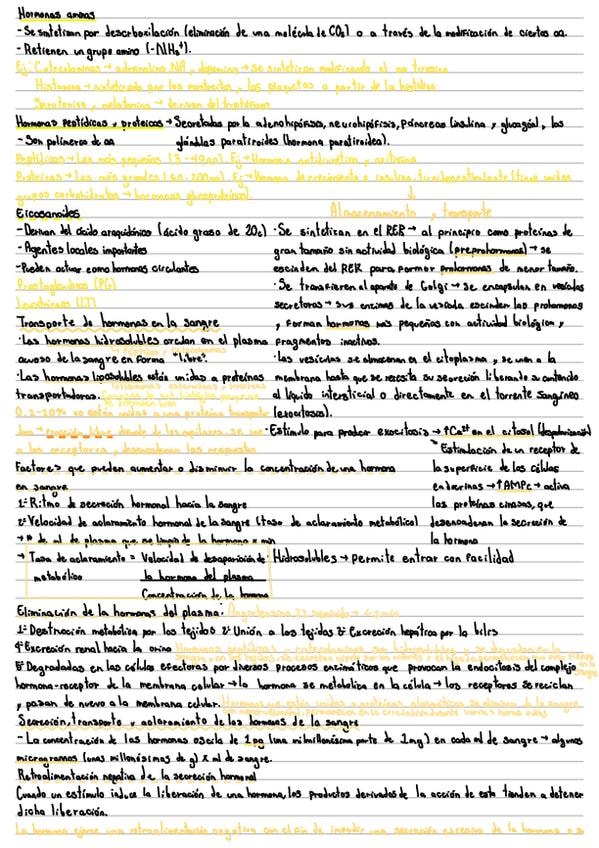 Hormonas aminas
- Se sintetizan por descarboxilación (eliminación de una molécula de CO₂) o a través de la modificación de ciertos aa.
- Retienen un grupo amino (-NH₃⁺).
Ej: Catecolaminas → adrenalina, NA, dopamina → se sintetizan modificando el aa tirosina
Histamina → sintetizada por los mastocitos, las plaquetas a partir de la histidina
Serotonina, melatonina → derivan del triptófano
Hormonas Peptídicas y proteicas → Secretadas por la adenohipófisis, neurohipófisis, páncreas (insulina y glucagón), las
- Son polímeros de aa
glándulas paratiroides (hormona paratiroidea).
Peptídicas → Las más pequeñas (3-49aa). Ej → Hormona antidiurética y oxitocina
Proteicas → Las más grandes (50-200aa). Ej → Hormona de crecimiento e insulina, tiroidoestimulante (tiene unidos
grupos carbohidratos → hormonas glucoproteicas).
Eicosanoides
- Derivan del ácido araquidónico (ácido graso de 20c)
- Agentes locales importantes
- Pueden actuar como hormonas circulantes
Prostaglandinas (PG)
Leucotrienos (LT)
Transporte de hormonas en la sangre
· Las hormonas hidrosolubles circulan en el plasma
acuoso de la sangre en forma "libre".
· Las hormonas liposolubles están unidas a proteínas
transportadoras.
0,1-10% no están unidas a una proteína transporta
dora → fracción libre difunde de los capilares, se une
a los receptores, desencadenan las respuestas
Almacenamiento y transporte
· Se sintetizan en el RER → al principio como proteínas de
gran tamaño sin actividad biológica (preprohormonas) → se
escinden del RER para formar prohormonas de menor tamaño.
· Se transfieren al aparato de Golgi → se encapsulan en vesículas
secretoras → sus enzimas de la vesícula escinden las prohormonas
y forman hormonas más pequeñas con actividad biológica y
fragmentos inactivos.
· Las vesículas se almacenan en el citoplasma y se unen a la
membrana hasta que se necesita su secreción liberando su contenido
al líquido intersticial o directamente en el torrente sanguíneo
(exocitosis).
· Estímulo para producir exocitosis → ↑Ca²⁺ en el citosol (despolarización)
Estimulación de un receptor de
la superficie de las células
endocrinas → ↑AMPc → activa
las proteínas cinasas, que
desencadenan la secreción de
la hormona
Factores que pueden aumentar o disminuir la concentración de una hormona
en sangre
1º Ritmo de secreción hormonal hacia la sangre
2º Velocidad de aclaramiento hormonal de la sangre (tasa de aclaramiento metabólico)
→ nº de ml de plasma que se limpia de la hormona x min
→ Tasa de aclaramiento = Velocidad de desaparición de
metabólico la hormona del plasma
Concentración de la hormona
Hidrosolubles → permite entrar con facilidad
Eliminación de la hormonas del plasma:
1º Destrucción metabólica por los tejidos 2º Unión a los tejidos 3º Excreción hepática por la bilis
4º Excreción renal hacia la orina
5º Degradadas en las células efectoras por diversos procesos enzimáticos que provocan la endocitosis del complejo
hormona-receptor de la membrana celular → la hormona se metaboliza en la célula → los receptores se reciclan
y pasan de nuevo a la membrana celular.
Secreción, transporte y aclaramiento de las hormonas de la sangre
- La concentración de las hormonas oscila de 1pg (una milmillonésima parte de 1mg) en cada ml de sangre → algunos
microgramos (unas millonésimas de g) x ml de sangre.
Retroalimentación negativa de la secreción hormonal
Cuando un estímulo induce la liberación de una hormona, los productos derivados de la acción de esta tienden a detener
dicha liberación.
La hormona ejerce una retroalimentación negativa con el fin de impedir una secreción excesiva de la hormona o s